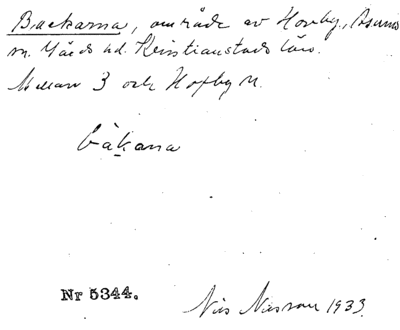 Backarna, område av Horby, Asums
sn. Gärds hd. Kristianstads län.
Mellan 3 och Horby N.
bàkana
Nr 5344.
Nils 1933